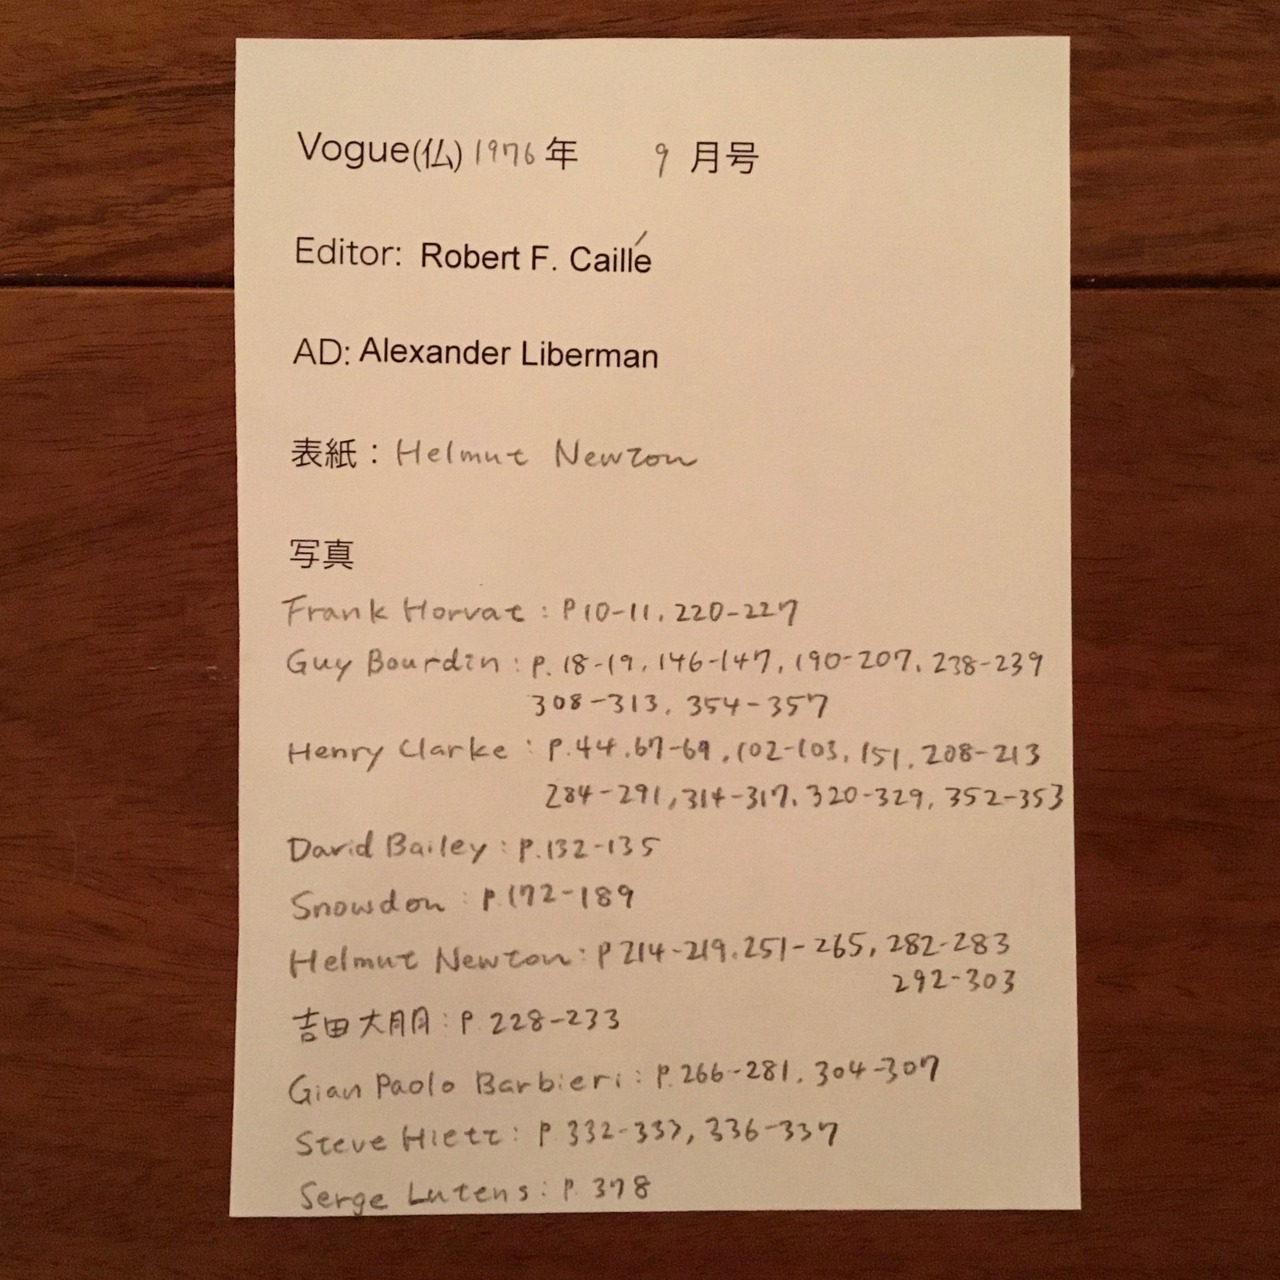 Vogue(仏) 1976年 9 月号
Editor: Robert F. Caillé
AD: Alexander Liberman
表紙：Helmut Newton
写真
Frank Horvat : P10-11, 220-227
Guy Bourdin : P. 18-19, 146-147, 190-207, 238-239
308-313, 354-357
Henry Clarke : P. 44, 67-69, 102-103, 151, 208-213
284-291, 314-317, 320-329, 352-353
David Bailey : P. 132-135
Snowdon : P. 172-189
Helmut Newton : P 214-219, 251-265, 282-283
292-303
吉田大朋 : P. 228-233
Gian Paolo Barbieri : P. 266-281, 304-307
Steve Hiett : P. 332-333, 336-337
Serge Lutens : P. 378